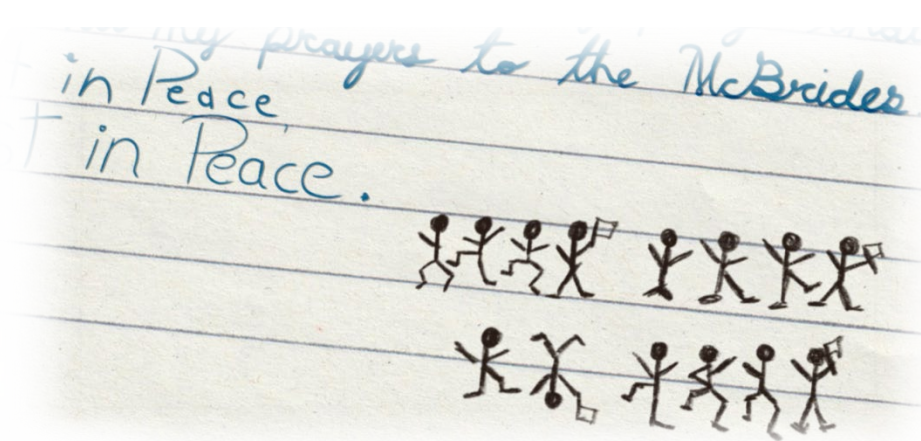 my prayers to the McBrides
in Peace
in Peace.